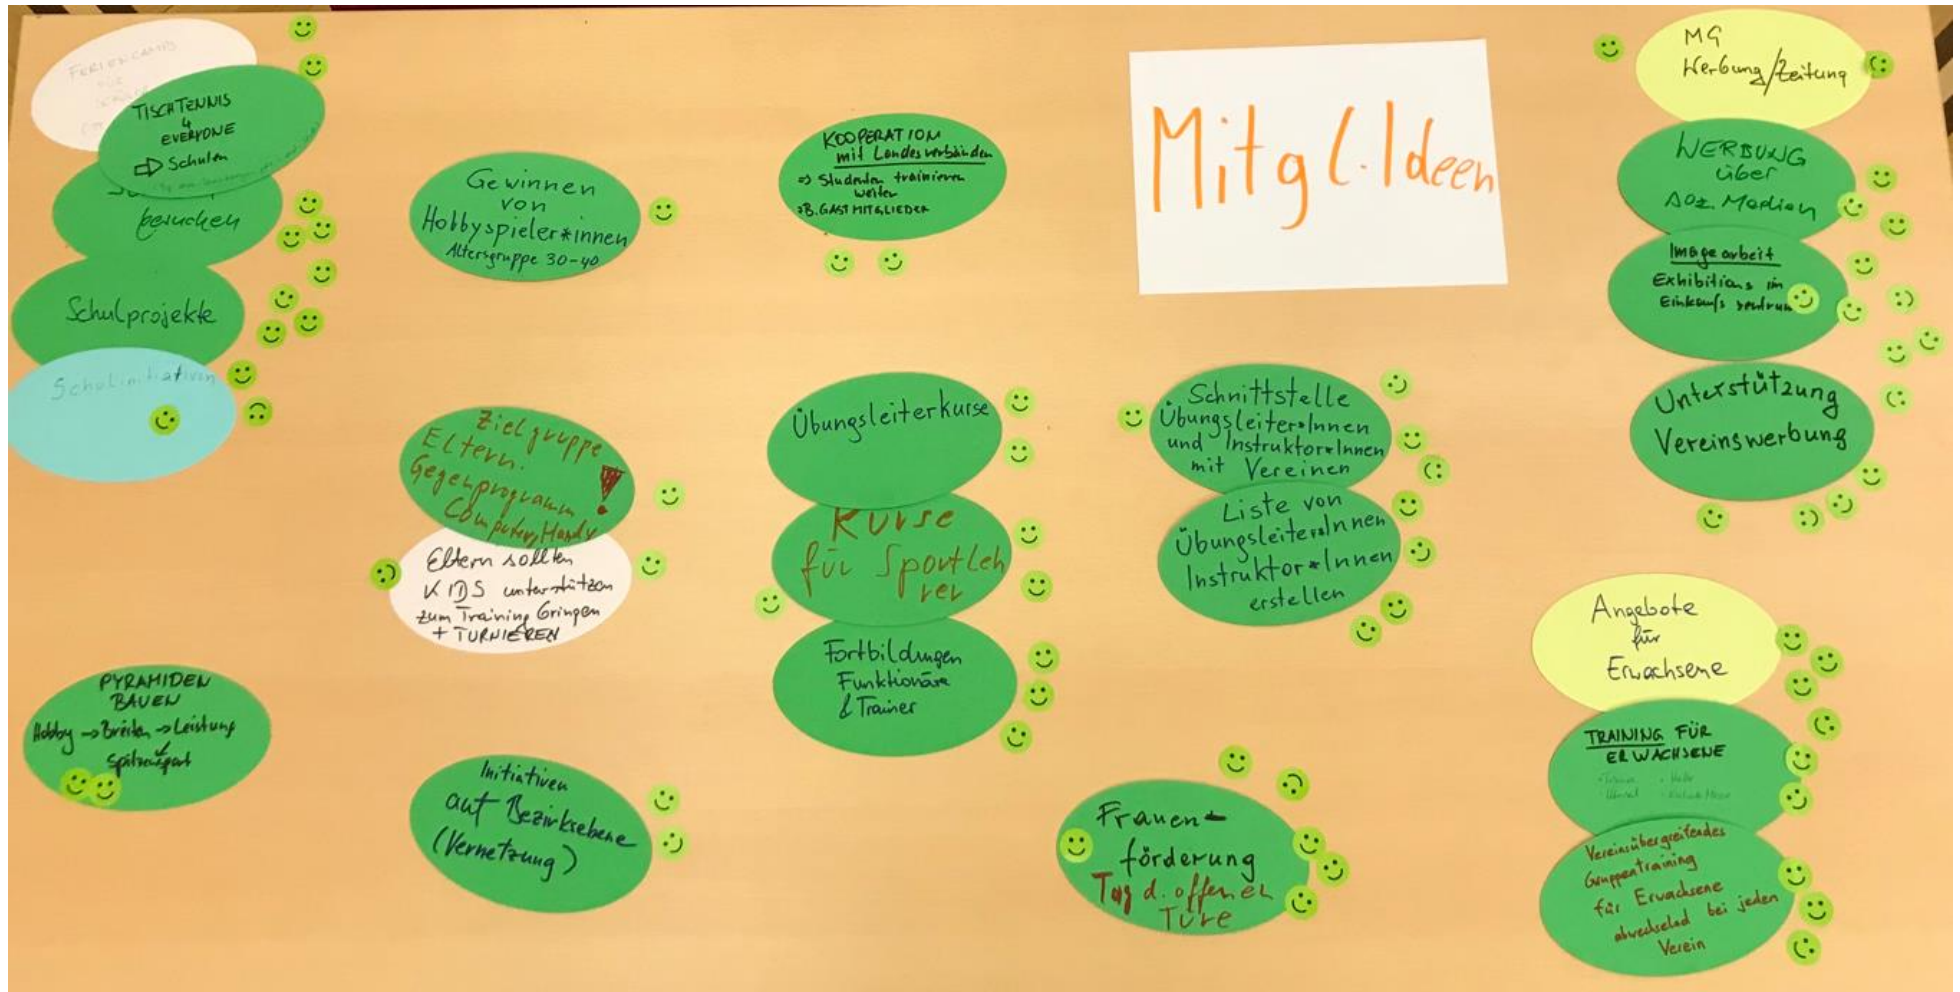 FERIENCAMPS
FÜR
TISCHTENNIS
4
EVERYONE
⇨ Schulen
besuchen
Schulprojekte
Schulinitiativen
Gewinnen
von
Hobbyspieler*innen
Altersgruppe 30-40
Zielgruppe
Eltern.
Gegenprogramm
Computer, Handy
!
Eltern sollten
KIDS unterstützen
zum Training bringen
+ TURNIEREN
PYRAMIDEN
BAUEN
Hobby → Breiten → Leistung
Spitzensport
Initiativen
auf Bezirksebene
(Vernetzung)
KOOPERATION
mit Landesverbänden
⇒ Studenten trainieren
weiter
z.B. GASTMITGLIEDER
Übungsleiterkurse
Kurse
für Sportleh
rer
Fortbildungen
Funktionäre
& Trainer
Mitgl.Ideen
Schnittstelle
Übungsleiter*Innen
und Instruktor*Innen
mit Vereinen
Liste von
Übungsleiter*Innen
Instruktor*Innen
erstellen
Frauen-
förderung
Tag d. offenen
Türe
MG
Werbung/Zeitung
WERBUNG
über
soz. Medien
Imagearbeit
Exhibitions im
Einkaufszentrum
Unterstützung
Vereinswerbung
Angebote
für
Erwachsene
TRAINING FÜR
ERWACHSENE
Vereinsübergreifendes
Gruppentraining
für Erwachsene
abwechselnd bei jeden
Verein